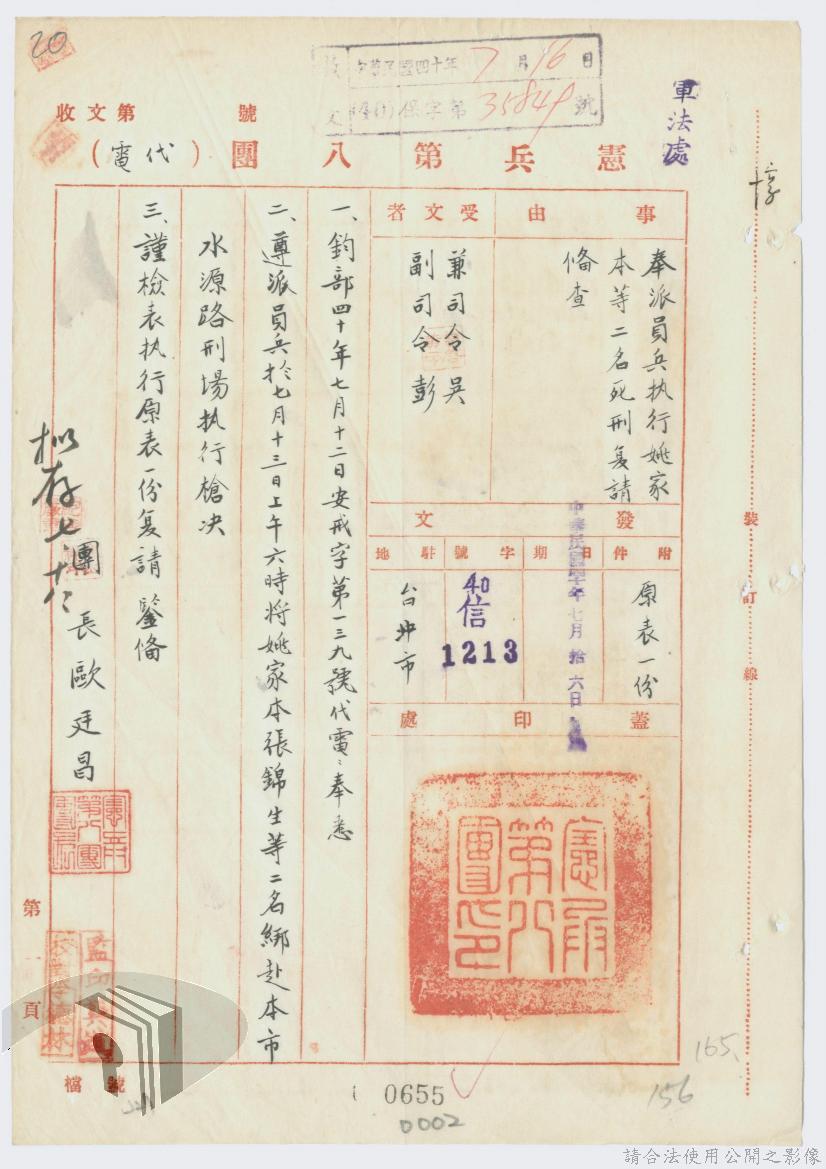 20
中華民國四十年7月16日
保字第35849號
軍法處
收文第 號
憲兵第八團(代電)
事由
奉派員兵执行姚家
本等二名死刑复請
俻查
受文者
兼司令吳
副司令彭
發文
附件
原表一份
日期
中華民國四十年七月拾六日
字號
40
信
1213
駐地
台北市
蓋印處
一、鈞部四十年七月十二日安戒字第一三九號代電奉悉
二、遵派員兵於七月十三日上午六時将姚家本張錦生等二名綁赴本市
水源路刑場执行槍决
三、謹檢表执行原表一份复請 鑒俻
團長歐廷昌
擬存
第 頁
檔號
裝訂線
0655
0002
165
156
請合法使用公開之影像